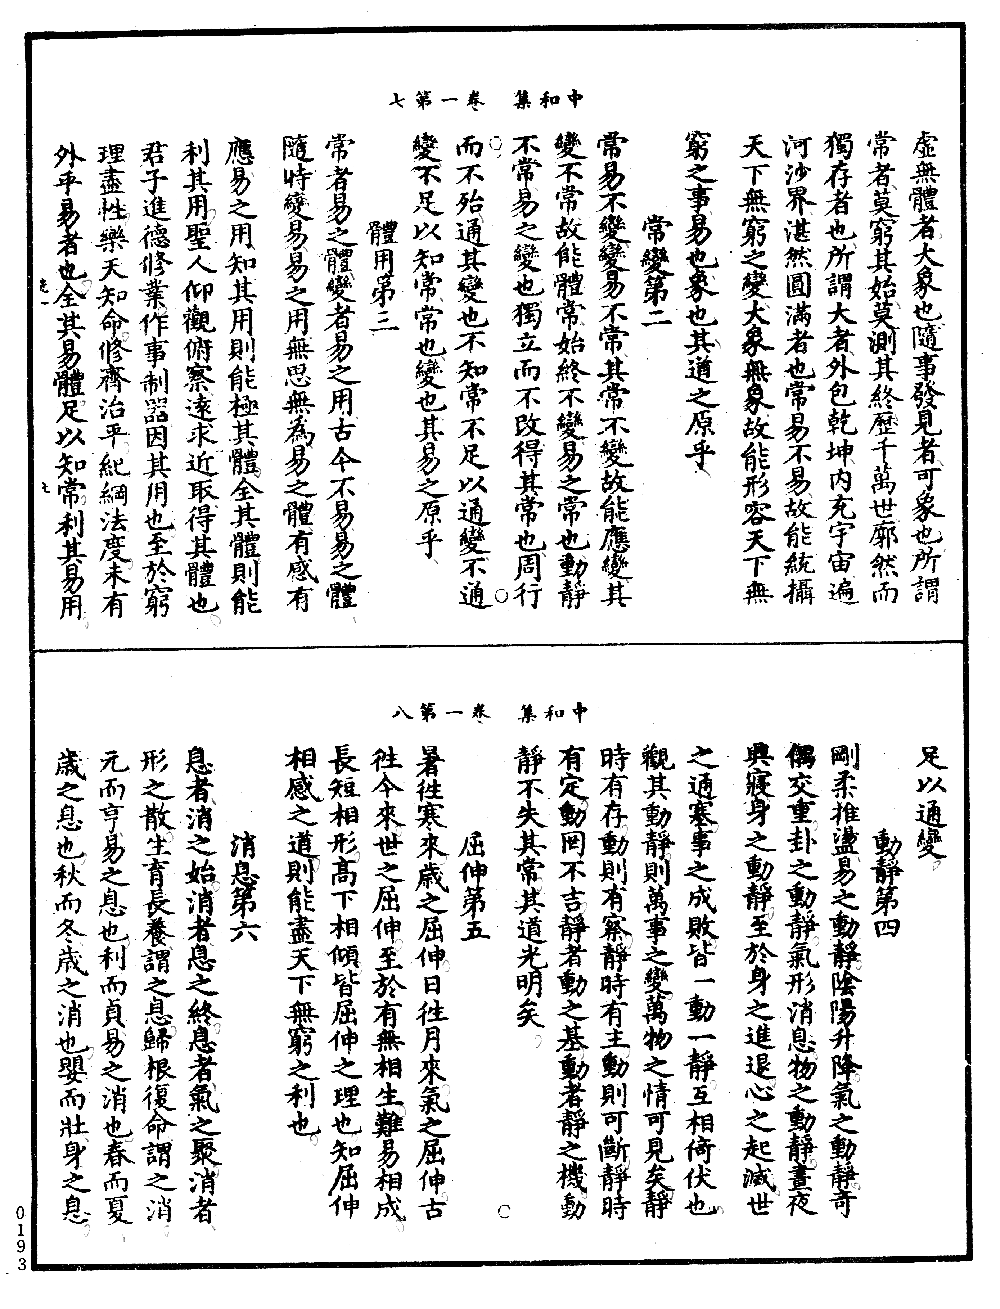 中和集　卷一第七
虛無體者大象也隨事發見者可象也所謂
常者莫窮其始莫測其終歷千萬世廓然而
獨存者也所謂大者外包乾坤內充宇宙遍
河沙界湛然圓滿者也常易不易故能統攝
天下無窮之變大象無象故能形容天下無
窮之事易也象也其道之原乎
常變第二
常易不變變易不常其常不變故能應變其
變不常故能體常始終不變易之常也動靜
不常易之變也獨立而不改得其常也周行
而不殆通其變也不知常不足以通變不通
變不足以知常常也變也其易之原乎
體用第三
常者易之體變者易之用古今不易易之體
隨時變易易之用無思無為易之體有感有
應易之用知其用則能極其體全其體則能
利其用聖人仰觀俯察遠求近取得其體也
君子進德修業作事制器因其用也至於窮
理盡性樂天知命修齊治平紀綱法度未有
外乎易者也全其易體足以知常利其易用
中和集　卷一第八
足以通變
動靜第四
剛柔推盪易之動靜陰陽升降氣之動靜奇
偶交重卦之動靜氣形消息物之動靜晝夜
興寢身之動靜至於身之進退心之起滅世
之通塞事之成敗皆一動一靜互相倚伏也
觀其動靜則萬事之變萬物之情可見矣靜
時有存動則有察靜時有主動則可斷靜時
有定動罔不吉靜者動之基動者靜之機動
靜不失其常其道光明矣
屈伸第五
暑往寒來歲之屈伸日往月來氣之屈伸古
往今來世之屈伸至於有無相生難易相成
長短相形高下相傾皆屈伸之理也知屈伸
相感之道則能盡天下無窮之利也
消息第六
息者消之始消者息之終息者氣之聚消者
形之散生育長養謂之息歸根復命謂之消
元而亨易之息也利而貞易之消也春而夏
歲之息也秋而冬歲之消也嬰而壯身之息
0193